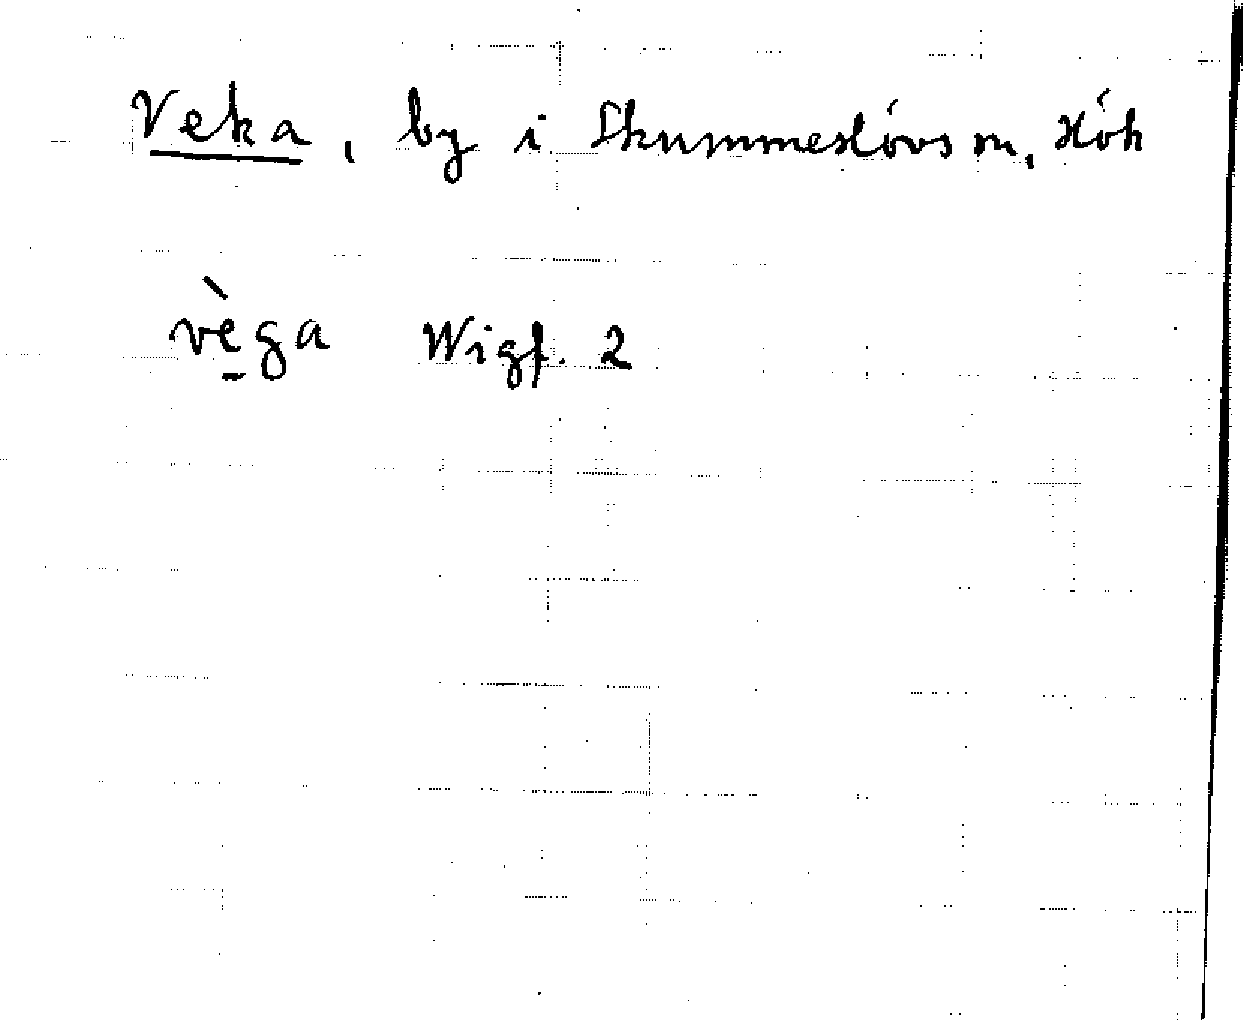 Veka, by i Skummeslövs sn, Hök
vèga Wigf. 2